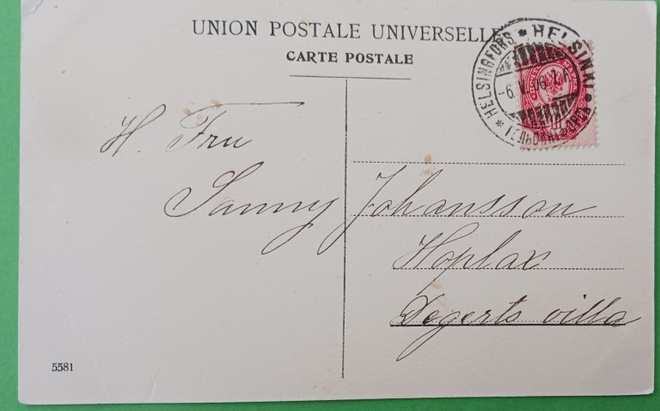 UNION POSTALE UNIVERSELLE
CARTE POSTALE
HELSINGFORS * HELSINKI * ГЕЛЬСИНГФОРСЪ *
H. Fru
Sanny Johansson
Hoplax
Degerts villa
5581